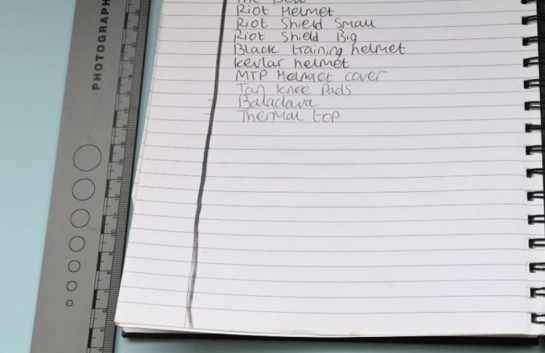 PHOTOGRAPH
Riot Helmet
Riot Shield Small
Riot Shield Big
Black training helmet
kevlar helmet
MTP Helmet cover
Tan knee Pads
Balaclava
Thermal top